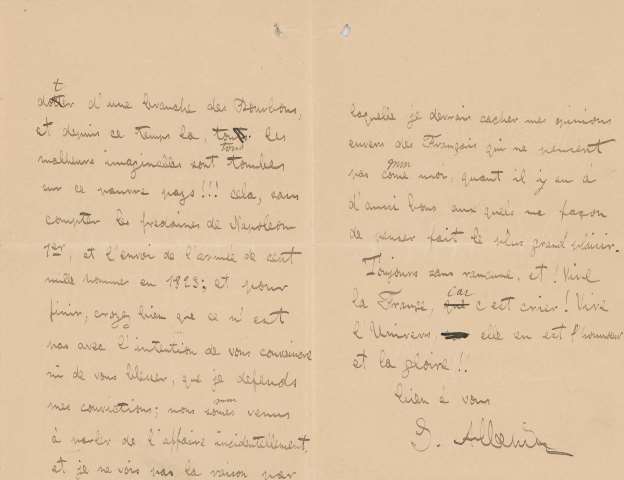 doter d'une branche des Bourbons,
et depuis ce temps la, tous les
malheurs imaginables sont tombés
sur ce pauvre pays!!! cela, sans
compter les fredaines de Napoleon
1er, et l'envoi de l'armée de cent
mille hommes en 1823: et pour
finir, croyez bien que ce n'est
pas avec l'intention de vous convaincre
ni de vous blesser, que je défends
mes convictions; nous somes venus
à parler de l'affaire incidentellement,
et je ne vois pas la raison par
laquelle je devrais cacher mes opinions
envers des Français qui ne pensent
pas come moi, quant il y en a
d'aussi bons aux quels ma façon
de penser fait le plus grand plaisir.
Toujours sans rancune, et! Vive
la France, car c'est crier! Vive
l'Univers, elle en est l'honneur
et la gloire!!
bien à vous